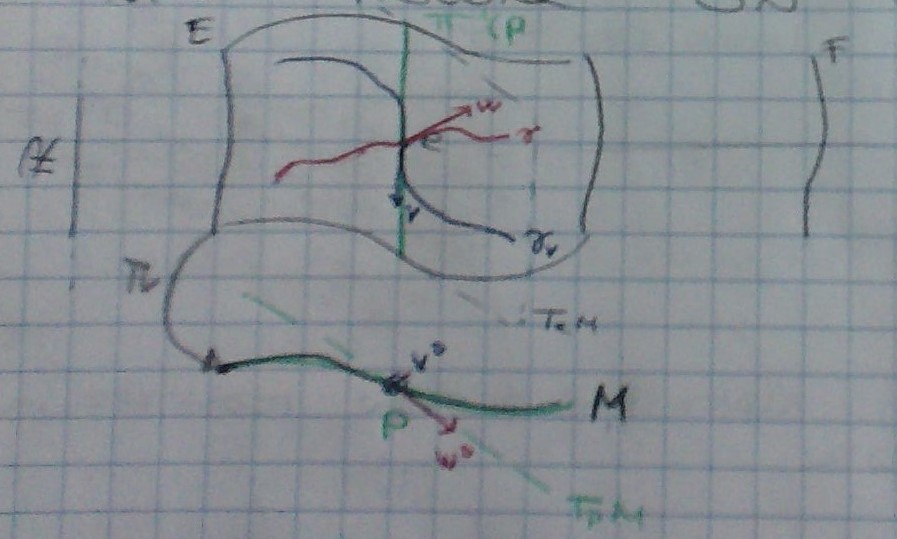 E
π⁻¹(p
F
w
e
γ
v
γᵥ
π
v⁰
M
p
w⁰
TₚM